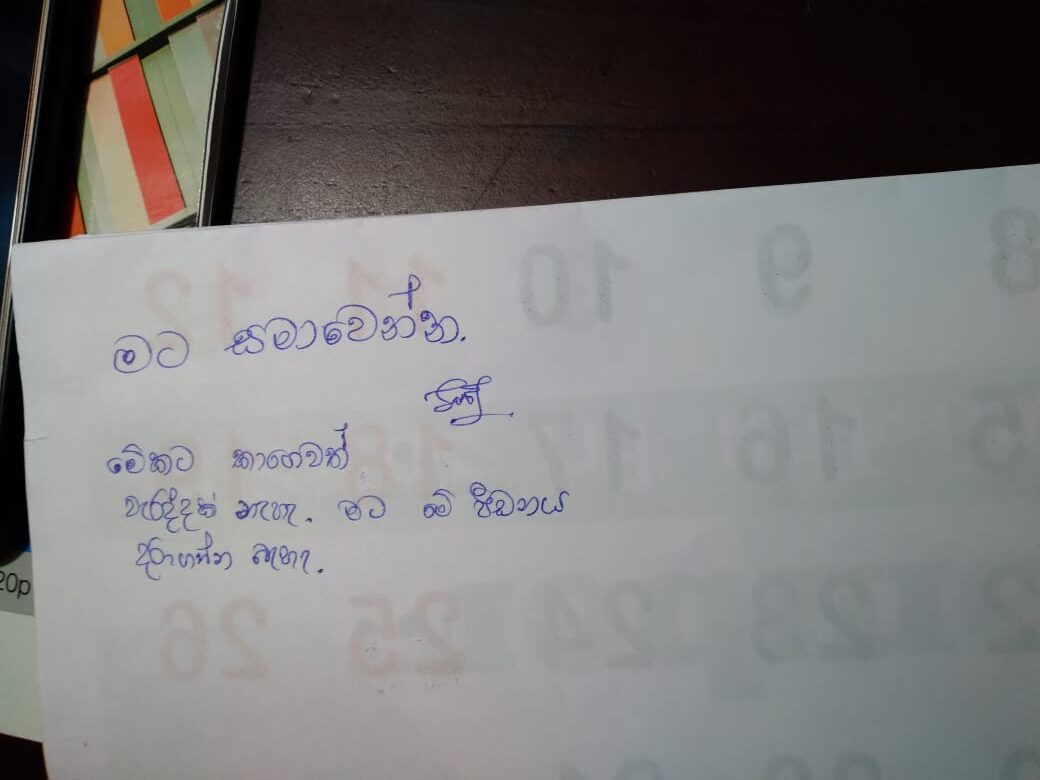 මට සමාවෙන්න.
මේකට කාගෙවත්
වැරැද්දක් නැහැ. මට මේ පීඩනය
දරාගන්න බැහැ.
12 11 10 9 8
18 17 16
26 25 24 23
20p